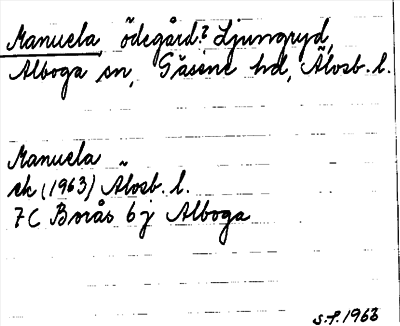 Manuela, ödegård? Ljungryd,
Alboga sn, Gäsene hd, Älvsb. l.
Manuela
ek (1963) Älvsb. l.
7C Borås 6j Alboga
s.f. 1963